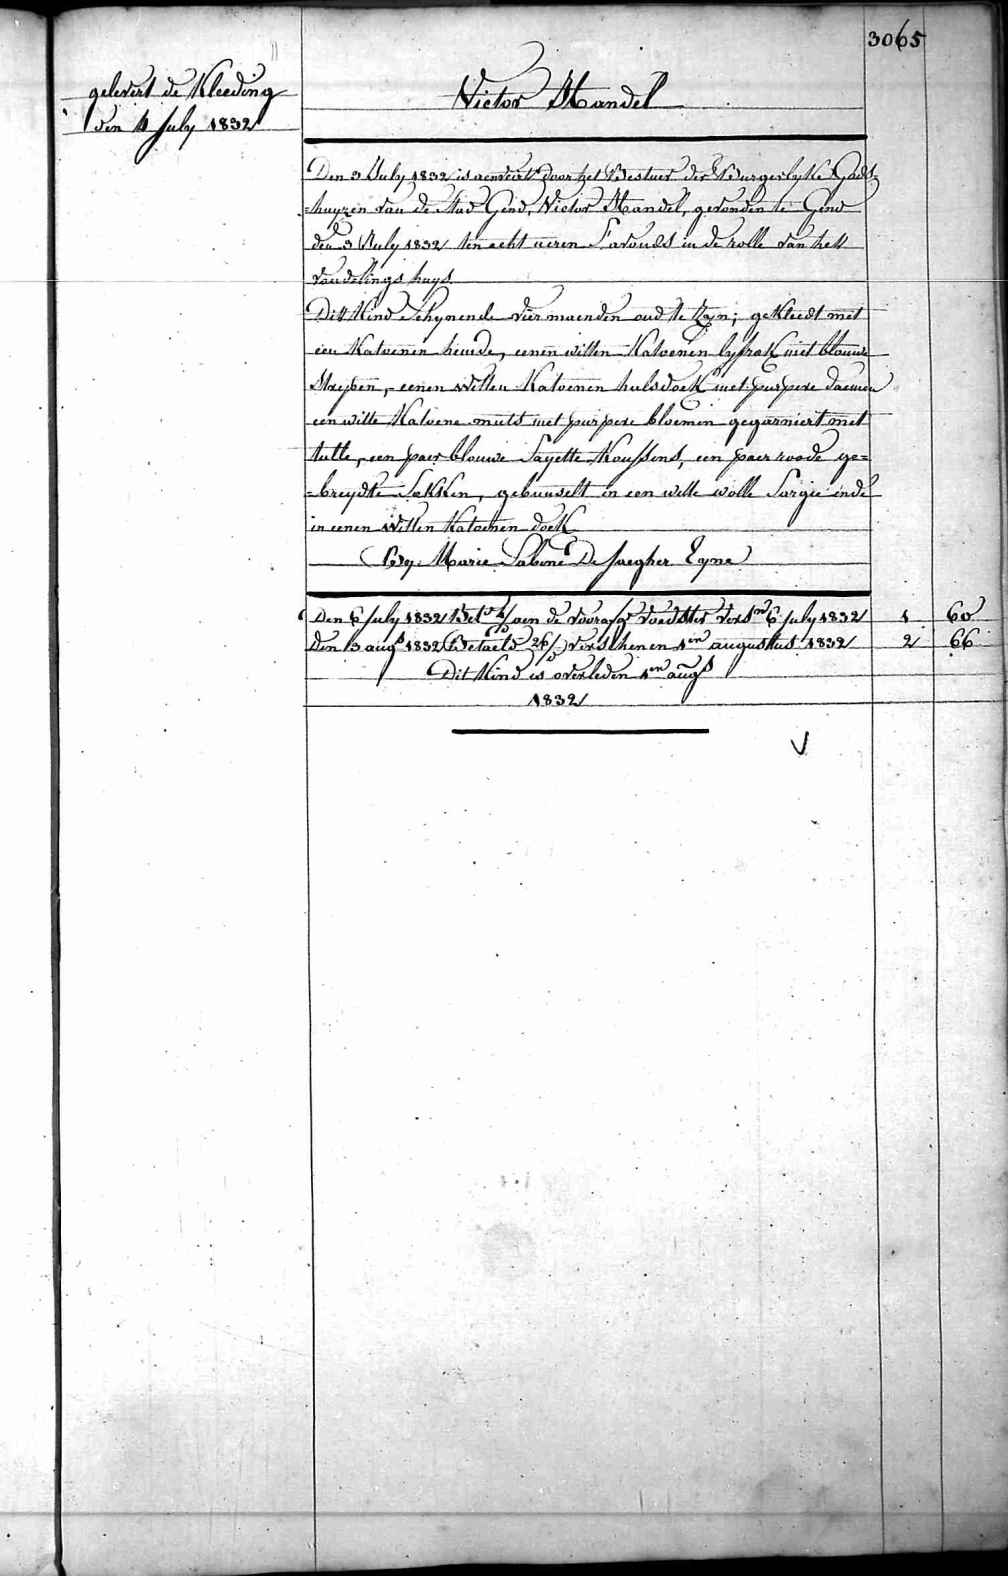 3065
gelevert de Kleeding
den 4 July 1832
Victor Mandel
Den 3 July 1832 is aenveirt door het Bestuer der Burgerlyke Gods-
=huyzen van de Stad Gend, Victor Mandel, gevonden te Gend
den 3 July 1832 ten acht ueren s'avonds in de rolle van het
vondelings huys.
Dit Kind schynende vier maenden oud te zyn; gekleedt met
een Katoenen hemde, eenen witten Katoenen lyfrok met blauwe
strepen, eenen witten Katoenen halsdoek met purpere
een witte Katoene muts met purpere bloemen gegarniert met
tulle, een paer blauwe Sayette Koussens, een paer roode ge=
=breydte Sokken, gebunselt in een witte wolle Sargie ende
in eenen witten Katoenen doek
By Marie Sabine De Jaegher Eyne
Den 6 July 1832 aen de voedster 6 July 1832 1 60
Den 13 augs 1832 Betaeld 26/ verschenen 1en augustus 1832 2 66
Dit Kind is overleden 1en augs
1832